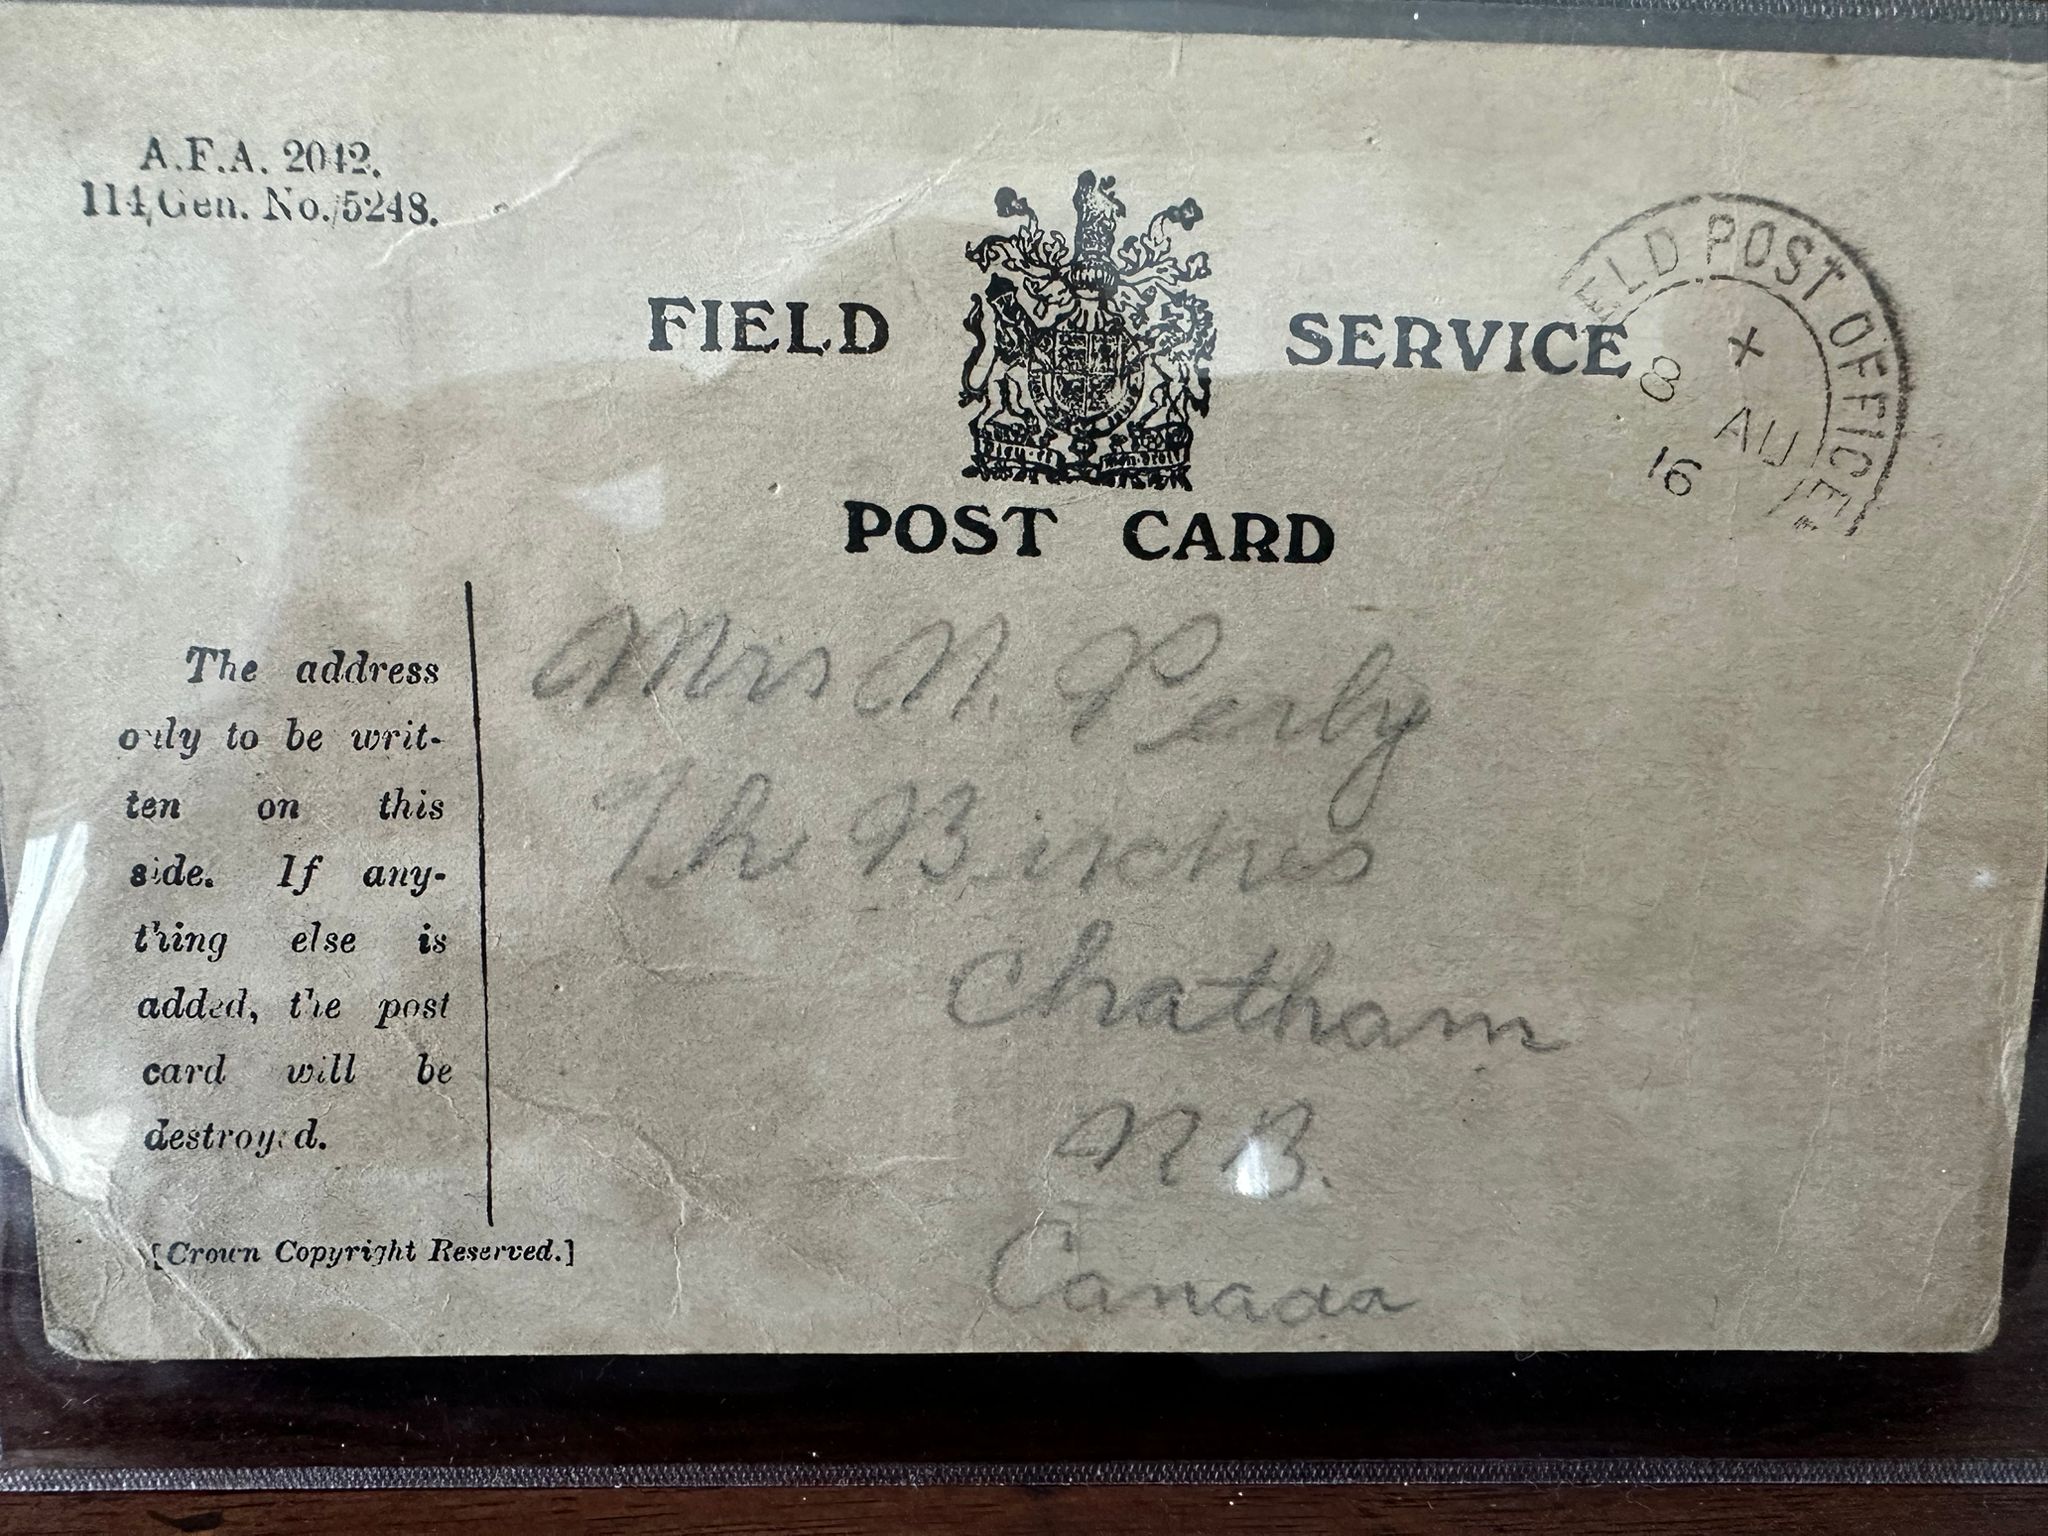 A.F.A. 2042.
114/Gen. No./5248.
FIELD SERVICE
POST CARD
FIELD POST OFFICE
X
8 AU
16
The address
only to be writ-
ten on this
side. If any-
thing else is
added, the post
card will be
destroyed.
[Crown Copyright Reserved.]
Mrs N. Perley
The Birches
Chatham
N B.
Canada